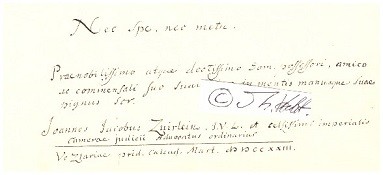 Nec Spe, nec metu.
Praenobilissimo atque doctissimo Dom. possessori, amico
ac commensali suo in mentis manusque suae
pignus scr.
Joannes Jacobus Zuirlein, et celsissimi imperialis
camerae judicii Advocatus ordinarius
prid. Calend. Mart.
©